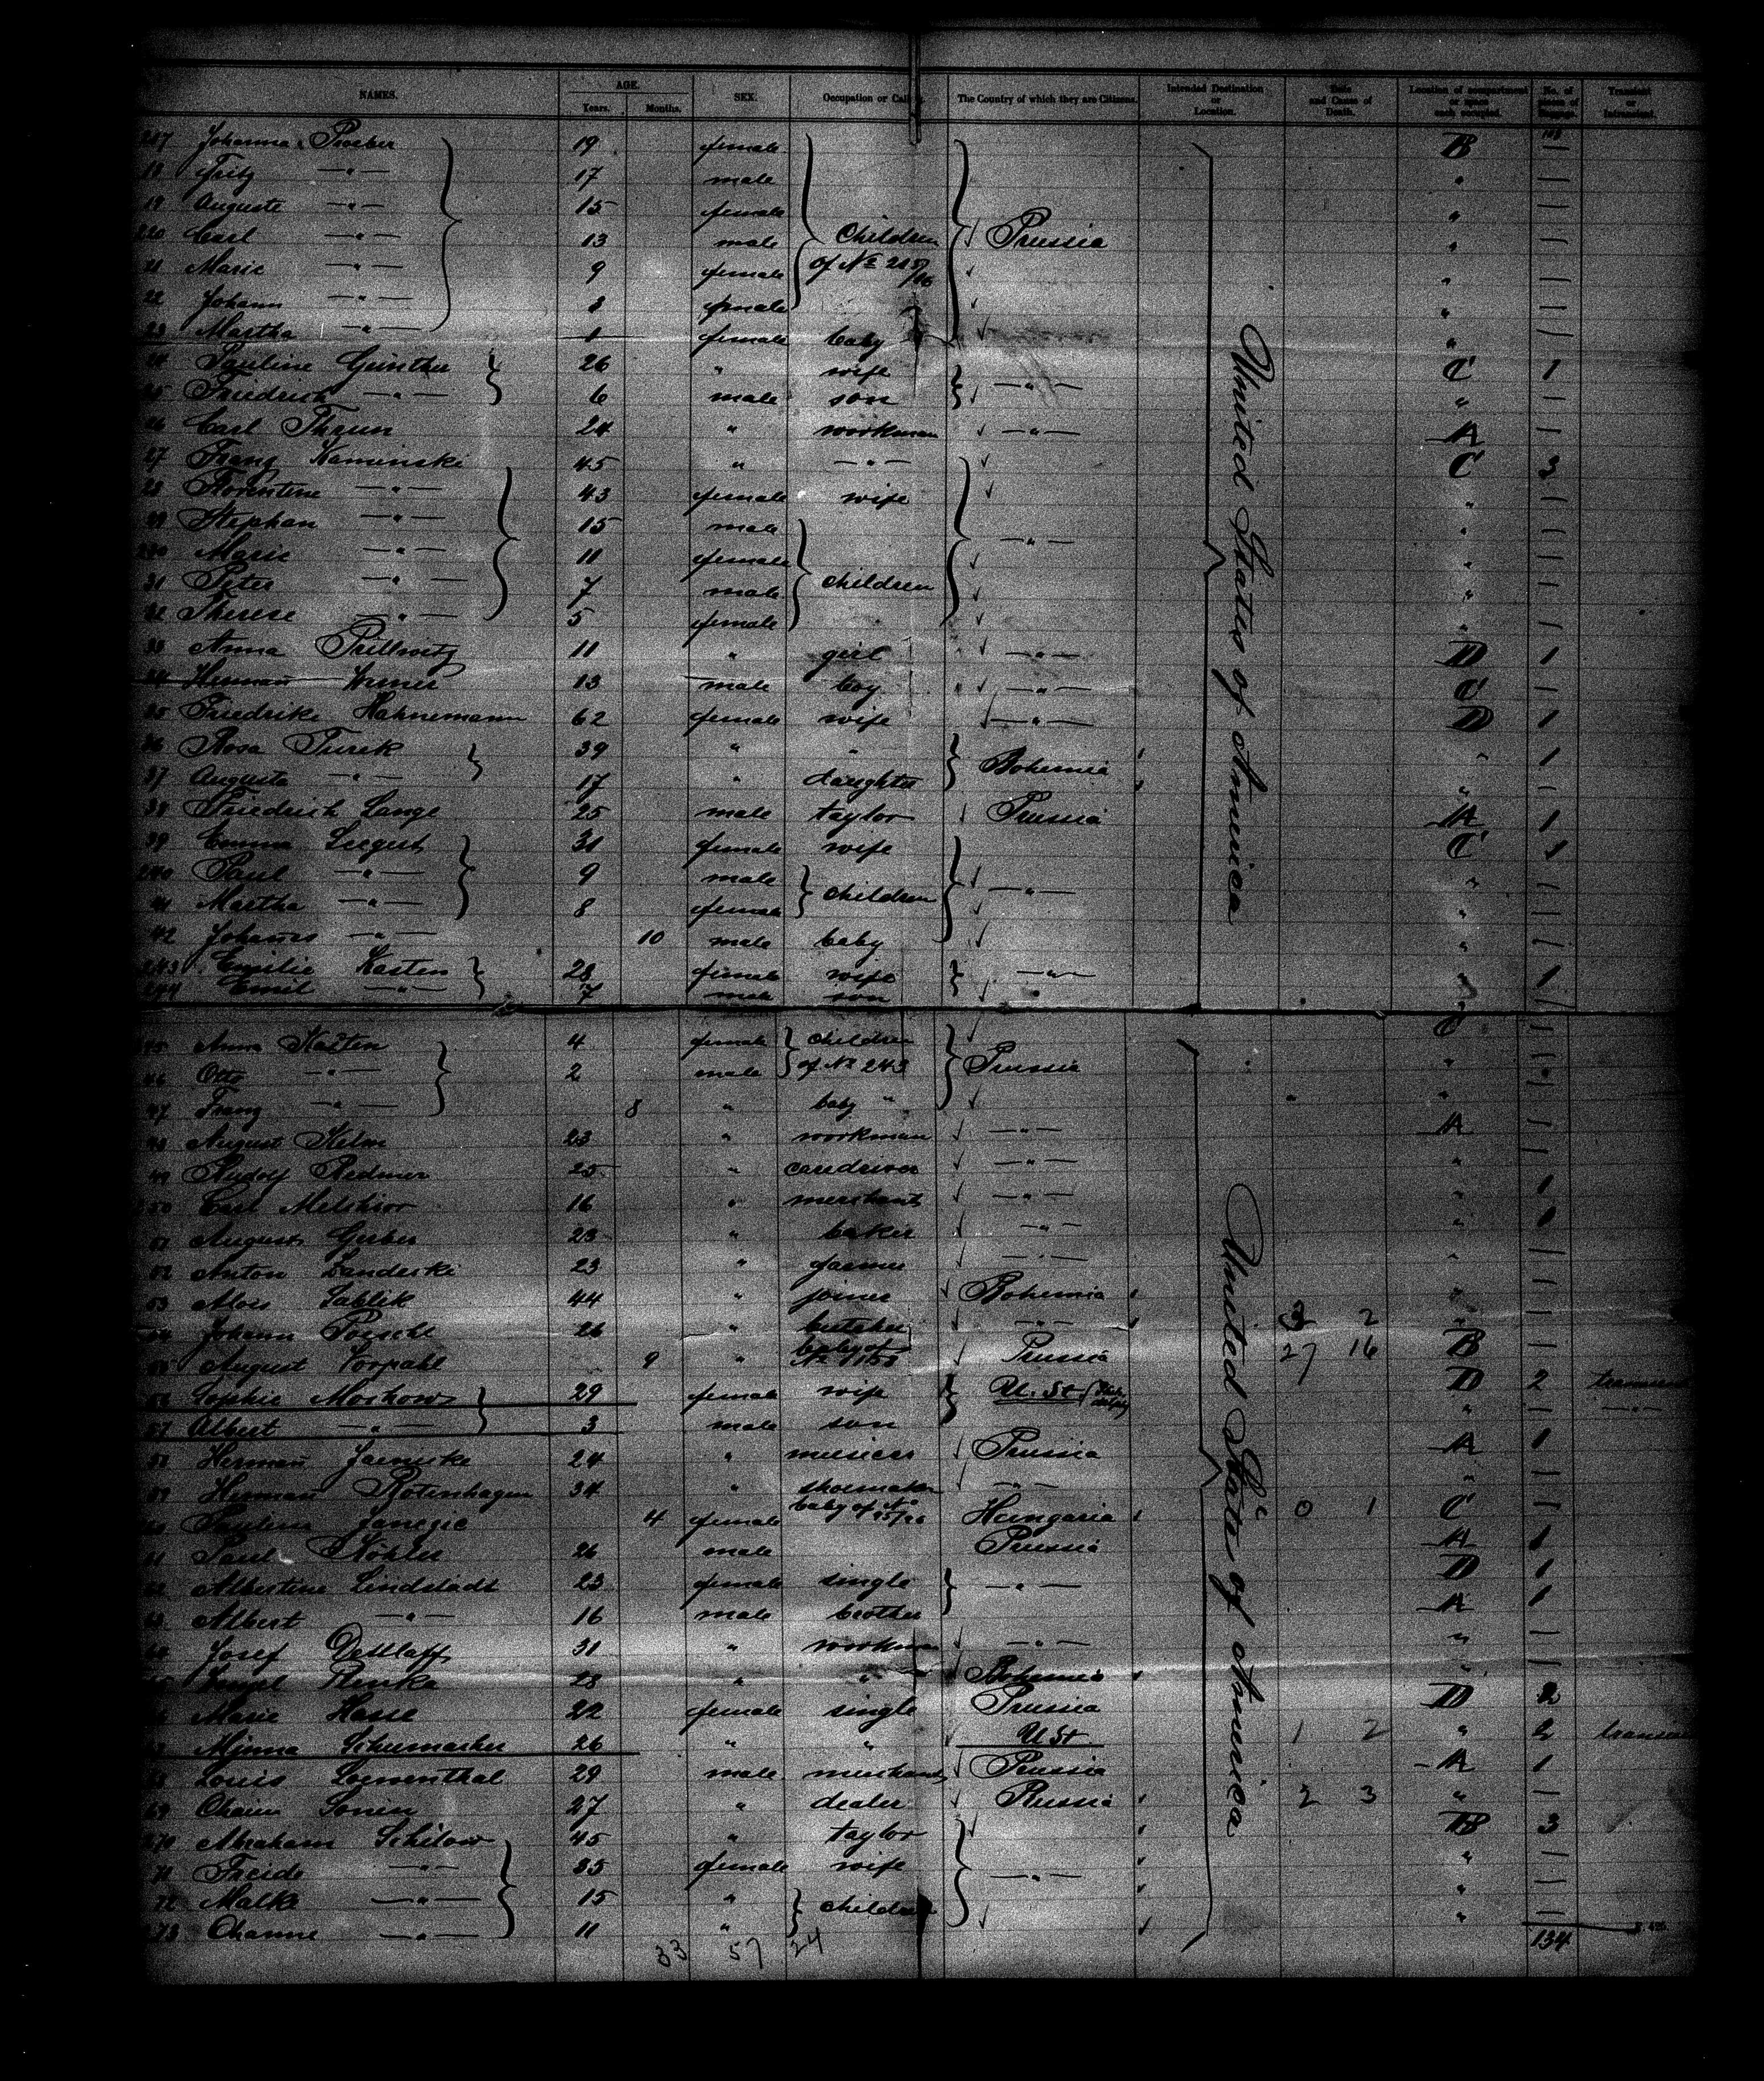 NAMES. AGE. Years. Months. SEX. Occupation or Calling. The Country of which they are Citizens. Intended Destination or Location. Date and Cause of Death. Location of compartment or space each occupied. No. of pieces of Baggage. Transient or Intransient.
217 Johanna 19 female B —
18 Fritz —"— 17 male " —
19 Auguste —"— 15 female " —
220 Carl —"— 13 male Children Prussia " —
21 Marie —"— 9 female of No 215/16 " —
22 Johann —"— female " —
23 Martha —"— 1 female baby " —
24 Pauline Günther 26 " wife —"— C 1
25 Friedrich —"— 6 male son " —
26 Carl Thrun 24 " workman —"— A —
27 Franz Kaminski 45 " —"— C 3
28 Florentine —"— 43 female wife " —
29 Stephan —"— 15 male —"— " —
230 Marie —"— 11 female " —
31 Peter —"— 7 male children " —
32 Therese —"— 5 female " —
33 Anna Prillwitz 11 " girl —"— D 1
34 Herman 13 male boy —"— C —
35 Friedrike Hahnemann 62 female wife —"— D 1
36 Rosa Turek 39 " " Bohemia " 1
37 Augusta —"— 17 " daughter " —
38 Friedrich Lange 25 male taylor Prussia A 1
39 Emma Siegert 31 female wife C 1
240 Paul —"— 9 male children —"— " —
41 Martha —"— 8 female " —
42 Johannes —"— 10 male baby " —
243 Emilie Kasten 28 female wife —"— " 1
244 Emil —"— 7 male son " —
United States of America
245 Anna Kasten 4 female children C —
46 Otto —"— 2 male of No 243 Prussia " —
47 Franz —"— 8 " baby " " —
48 August Kelm 23 " workman —"— A —
49 Rudolf Redmer 25 " —"— "
250 Carl Melchior 16 " merchant —"— " 1
51 August Gerber 23 " baker —"— " 1
52 Anton 23 " farmer —"— " —
53 Alois Sablik 44 " joiner Bohemia " —
54 Johann Poeschl 26 " butcher —"— 3 2 " —
55 August Vorpahl 9 " baby of No Prussia 27 16 B —
56 Sophie 29 female wife U. St. D 2
57 Albert —"— 3 male son " — —"—
58 Herman Jaenicke 24 " Prussia A 1
59 Herman Rotenhagen 34 " shoemaker —"— " —
60 4 female baby of No 25/26 Hungaria 0 1 C —
61 Paul Köhler 26 male Prussia A 1
62 Albertine Lindstädt 23 female single —"— D 1
63 Albert —"— 16 male brother A 1
64 Josef Dettlaff 31 " workman —"— " —
65 28 " " Bohemia " —
66 Marie Hasse 22 female single Prussia D 2
67 Minna Schumacher 26 " " U St 1 2 " 2
68 Louis Loewenthal 29 male merchant Prussia A 1
69 Chaim Sonin 27 " dealer Russia 2 3 " —
270 Abraham Schilow 45 " taylor B 3
71 Freide —"— 35 female wife —"— " —
72 Malke —"— 15 " children " —
73 Channe —"— 11 " " —
United States of America
33 57 24 134